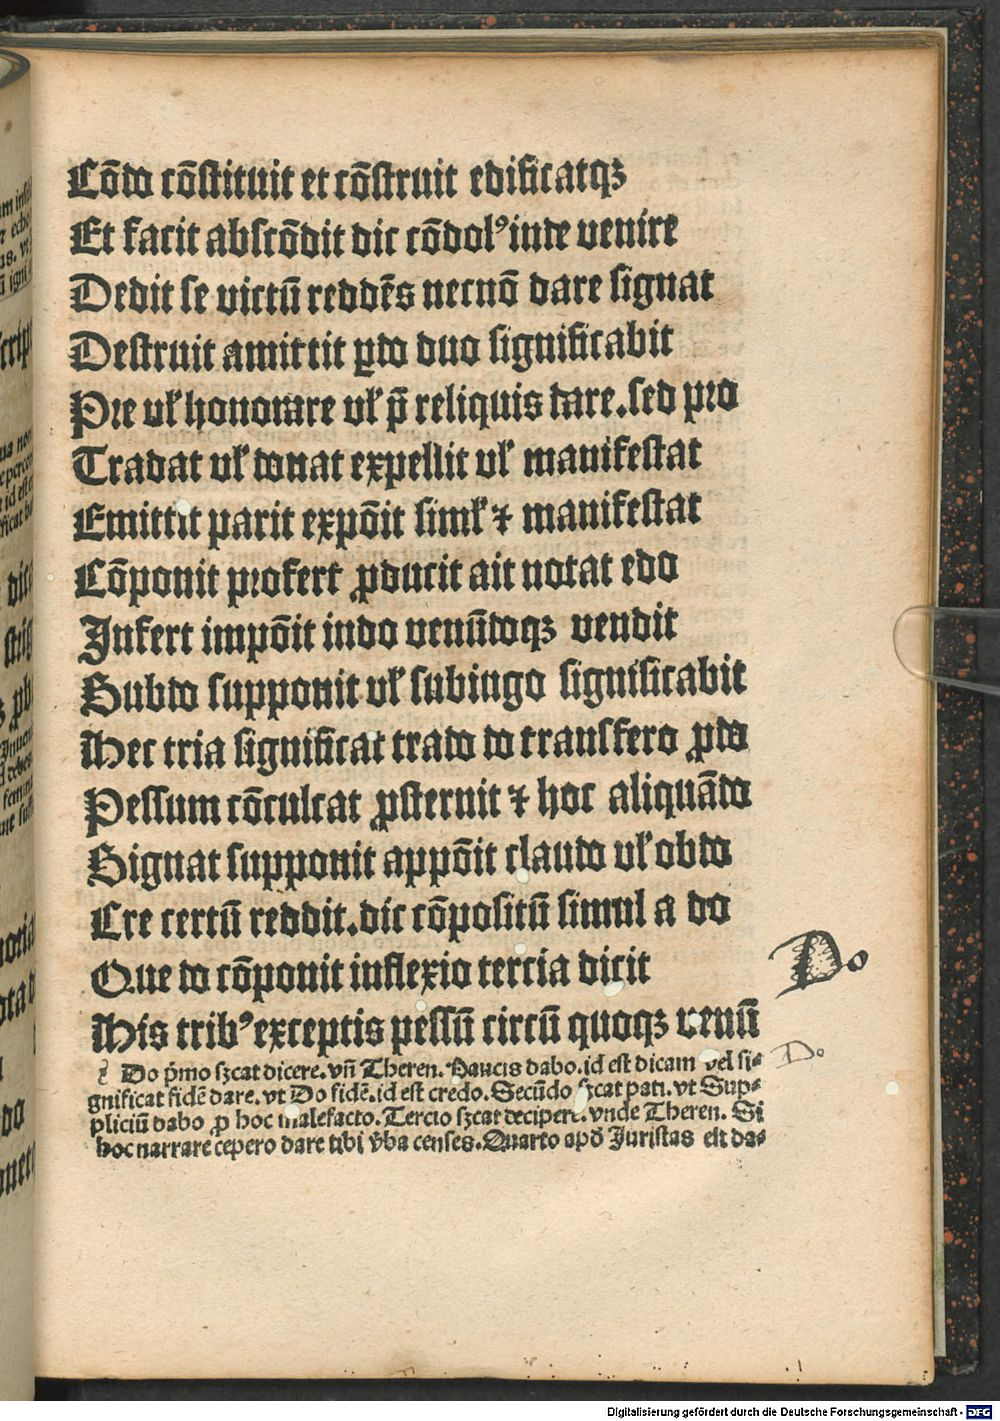 Cōdo cōstituit et cōstruit edificatqꝫ
Et facit abscōdit dic cōdolꝰ inde venire
Dedit se victū reddēs necnō dare signat
Destruit amittit ꝑdo duo significabit
Pre vel honorare vel p̄ reliquis dare. sed pro
Tradat vel donat expellit vel manifestat
Emittit parit expōit siml' ⁊ manifestat
Cōponit profert ꝓducit ait notat edo
Infert impōit indo venūdoqꝫ vendit
Subdo supponit vel subiugo significabit
Hec tria significat trado do transfero ꝓdo
Pessum cōculcat ꝓsternit ⁊ hoc aliquādo
Signat supponit appōit claudo vel obdo
Cre certū reddit. dic cōpositū simul a do
Que do cōponit inflexio tercia dicit
His tribꝰ exceptis pessū circū quoqꝫ venū
Do.
Do p̄mo sꝫcat dicere. vn̄ Theren. Paucis dabo. id est dicam vel si⸗
gnificat fidē dare. vt Do fidē. id est credo. Secūdo sꝫcat pati. vt Sup⸗
pliciū dabo ꝓ hoc malefacto. Tercio sꝫcat decipere. vnde Theren. Si
hoc narrare cepero dare tibi v̄ba censes. Quarto apd̄ Juristas est da⸗
Do
Digitalisierung gefördert durch die Deutsche Forschungsgemeinschaft - DFG